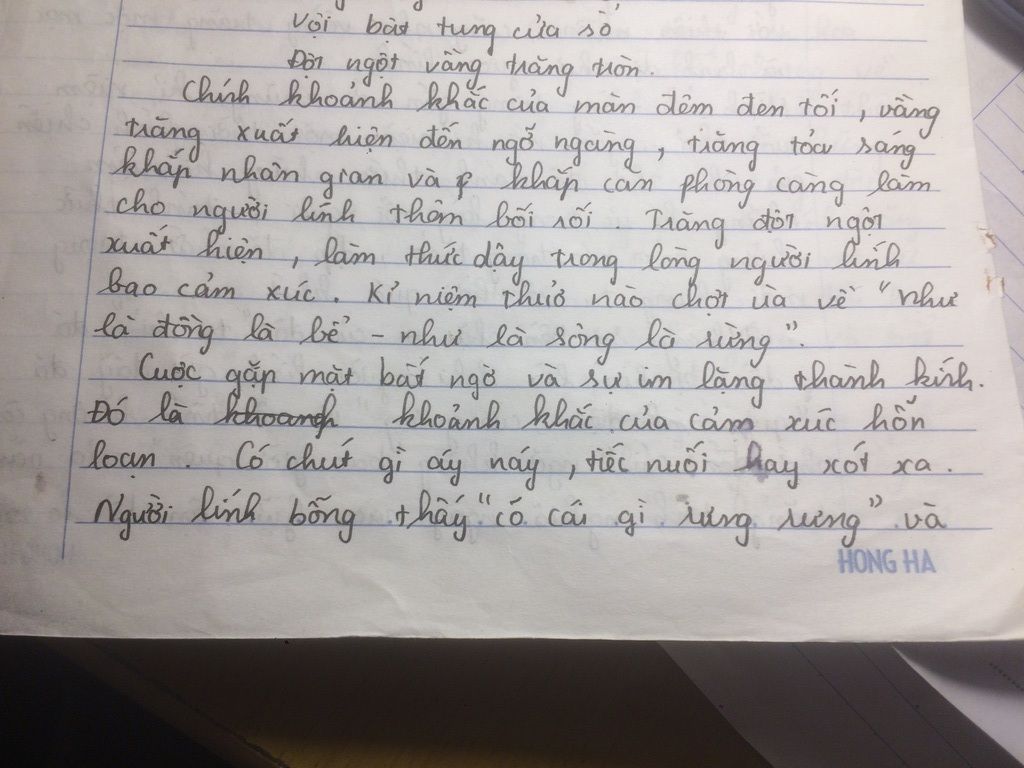 Vội bật tung cửa sổ
Đột ngột vầng trăng tròn.
Chính khoảnh khắc của màn đêm đen tối, vầng
trăng xuất hiện đến ngỡ ngàng, trăng tỏa sáng
khắp nhân gian và khắp căn phòng càng làm
cho người lính thêm bối rối. Trăng đột ngột
xuất hiện, làm thức dậy trong lòng người lính
bao cảm xúc. Kỉ niệm thuở nào chợt ùa về "như
là đồng là bể - như là sông là rừng".
Cuộc gặp mặt bất ngờ và sự im lặng thành kính.
Đó là khoảnh khắc của cảm xúc hỗn
loạn. Có chút gì áy náy, tiếc nuối hay xót xa.
Người lính bỗng thấy "có cái gì rưng rưng" và
HONG HA